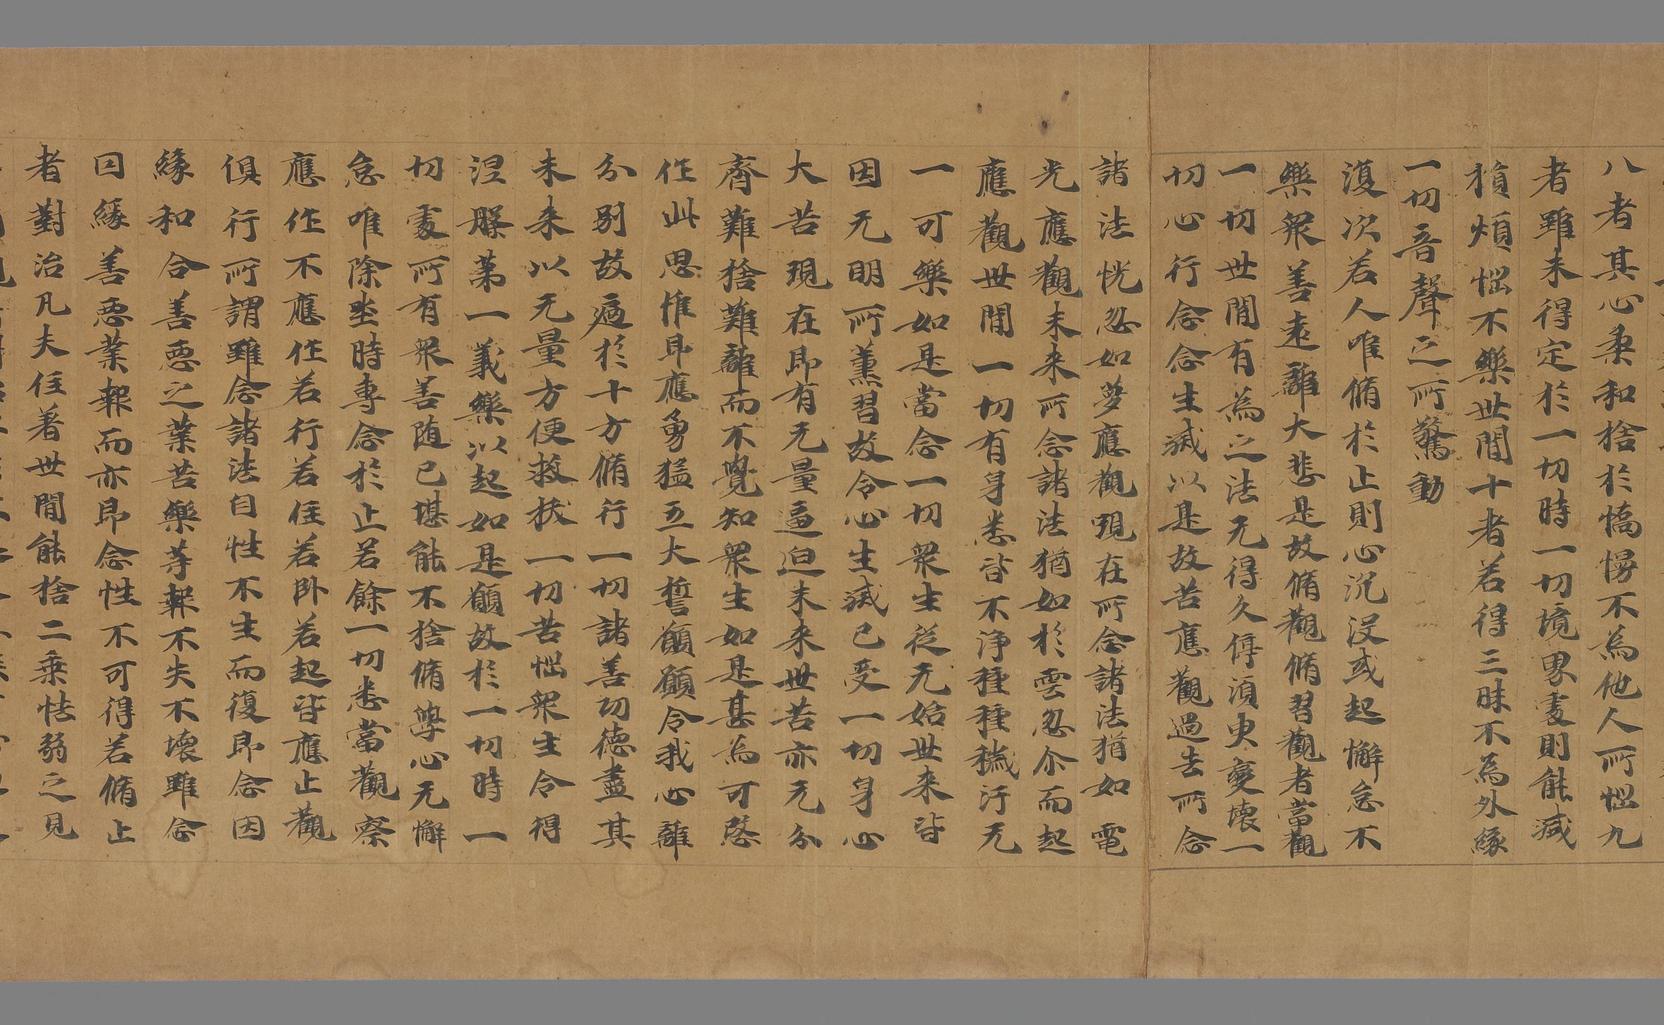 八者其心柔和捨於憍慢不為他人所惱九
者雖未得定於一切時一切境界處則能減
損煩惱不樂世間十者若得三昧不為外緣
一切音聲之所驚動
復次若人唯脩於止則心沉沒或起懈怠不
樂眾善遠離大悲是故脩觀脩習觀者當觀
一切世間有為之法无得久停須臾變壞一
切心行念念生滅以是故苦應觀過去所念
諸法恍忽如夢應觀現在所念諸法猶如電
光應觀未來所念諸法猶如於雲忽尒而起
應觀世間一切有身悉皆不淨種種穢汙无
一可樂如是當念一切眾生從无始世來皆
因无明所薰習故令心生滅已受一切身心
大苦現在即有无量逼迫未來世苦亦无分
齊難捨難離而不覺知眾生如是甚為可愍
作此思惟即應勇猛立大誓願願令我心離
分別故遍於十方脩行一切諸善功德盡其
未來以无量方便救拔一切苦惱眾生令得
涅槃第一義樂以起如是願故於一切時一
切處所有眾善隨已堪能不捨脩學心无懈
怠唯除坐時專念於止若餘一切悉當觀察
應作不應作若行若住若卧若起皆應止觀
俱行所謂雖念諸法自性不生而復即念因
緣和合善惡之業苦樂等報不失不壞雖念
因緣善惡業報而亦即念性不可得若脩止
者對治凡夫住著世間能捨二乘怯弱之見